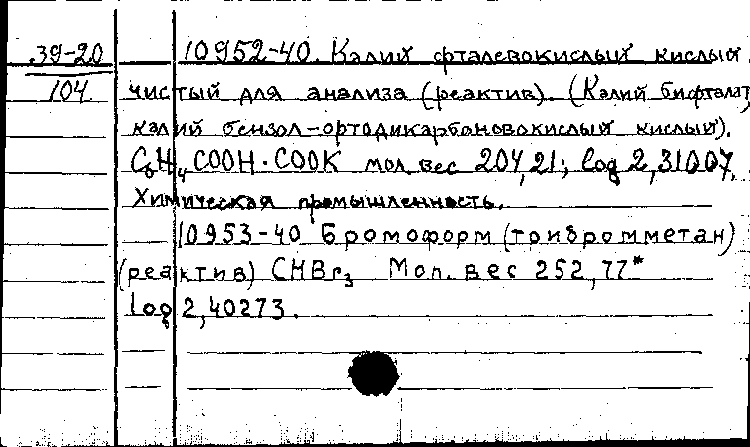 39-20
104
10952-40. Калий фталевокислый кислый
чистый для анализа (реактив). (Калий бифталат,
калий бензол-ортодикарбоновокислый кислый).
C₆H₄COOH·COOK мол. вес 204,21; log 2,31007.
Химическая промышленность.
10953-40 Бромоформ (трибромметан)
(реактив) CHBr₃ Мол. вес 252,77*
log 2,40273.